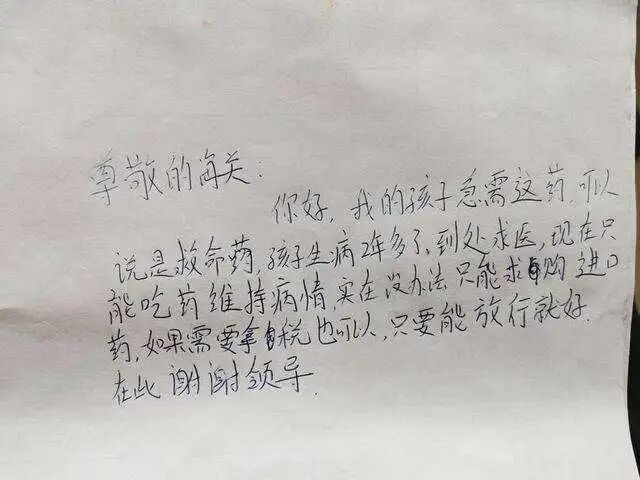 尊敬的海关:
你好,我的孩子急需这药,可以
说是救命药,孩子生病2年多了,到处求医,现在只
能吃药维持病情,实在没办法只能求购进口
药,如果需要拿税也可以,只要能放行就好.
在此谢谢领导.